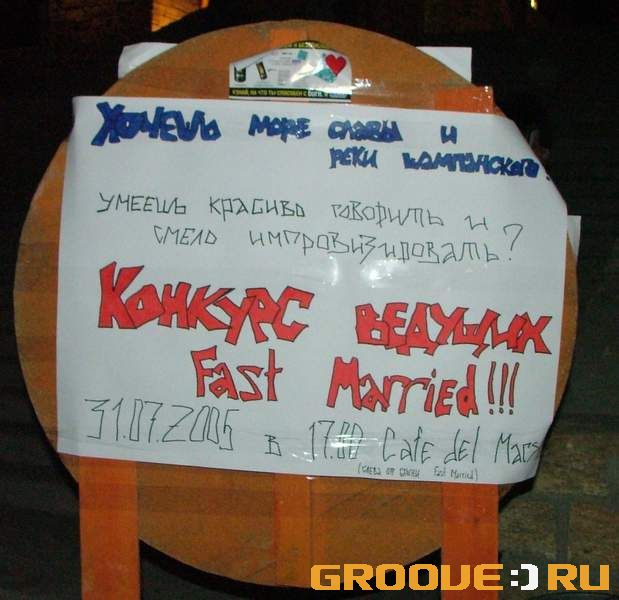 Хочешь море славы и
реки шампанского?
умеешь красиво говорить и
смело импровизировать?
Конкурс ведущих
Fast Married!!!
31.07.2005 в 17.00 Cafe del
(слева от сцены Fast Married)
GROOVE:)RU